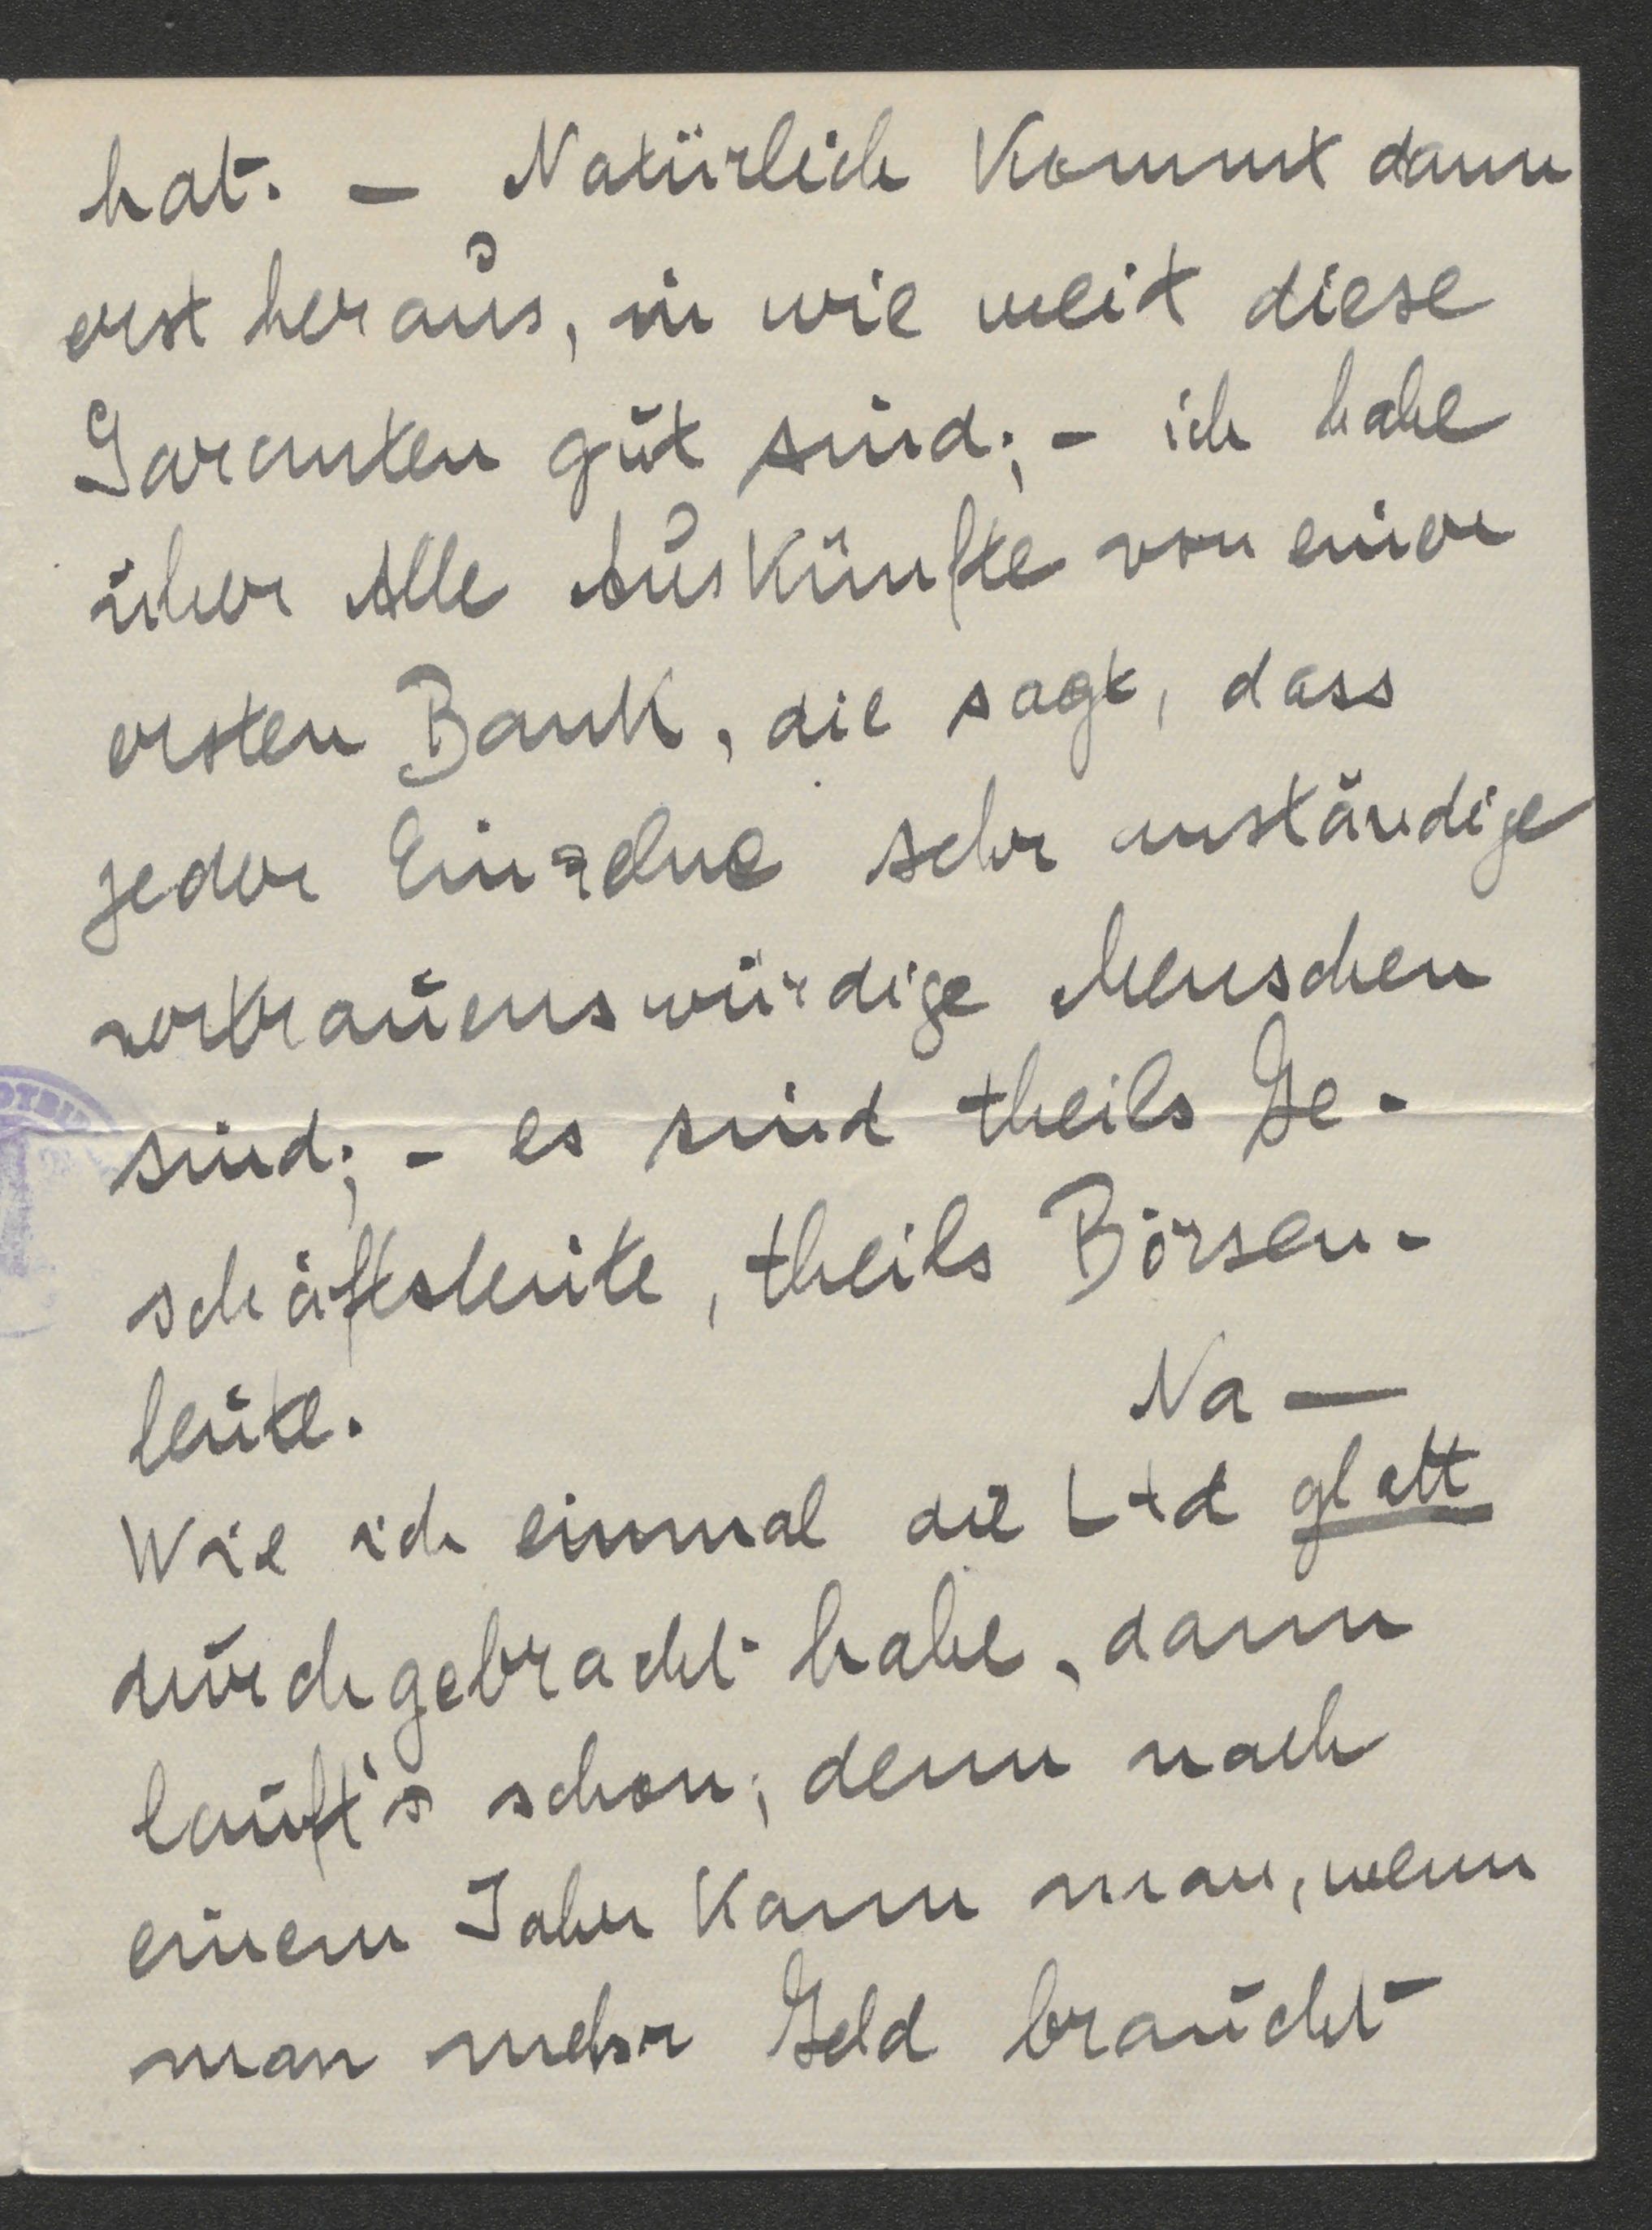 hat. — Natürlich kommt dann
erst heraus, in wie weit diese
Garanten gut sind; - ich habe
über Alle Auskünfte von einer
ersten Bank, die sagt, dass
jeder Einzelne sehr anständige
vertrauenswürdige Menschen
sind; - es sind theils Ge-
schäftsleute, theils Börsen-
leute. Na —
Wie ich einmal die Ltd glatt
durchgebracht habe, dann
lauft's schon; denn nach
einem Jahr kann man, wenn
man mehr Geld braucht